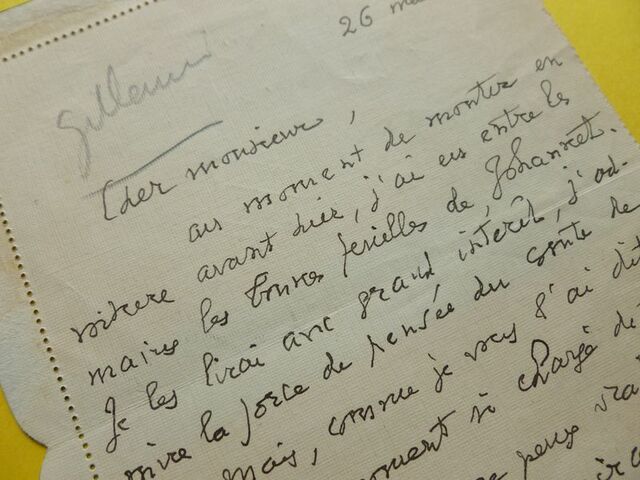 26 ma
Cher monsieur,
au moment de monter en
voiture avant hier, j'ai eu entre les
mains les bonnes feuilles de Johannet.
Je les lirai avec grand intérêt, j'ad-
mire la force de pensée du conte de
Mais, comme je vous l'ai dit
moment si chargé de
peux vra